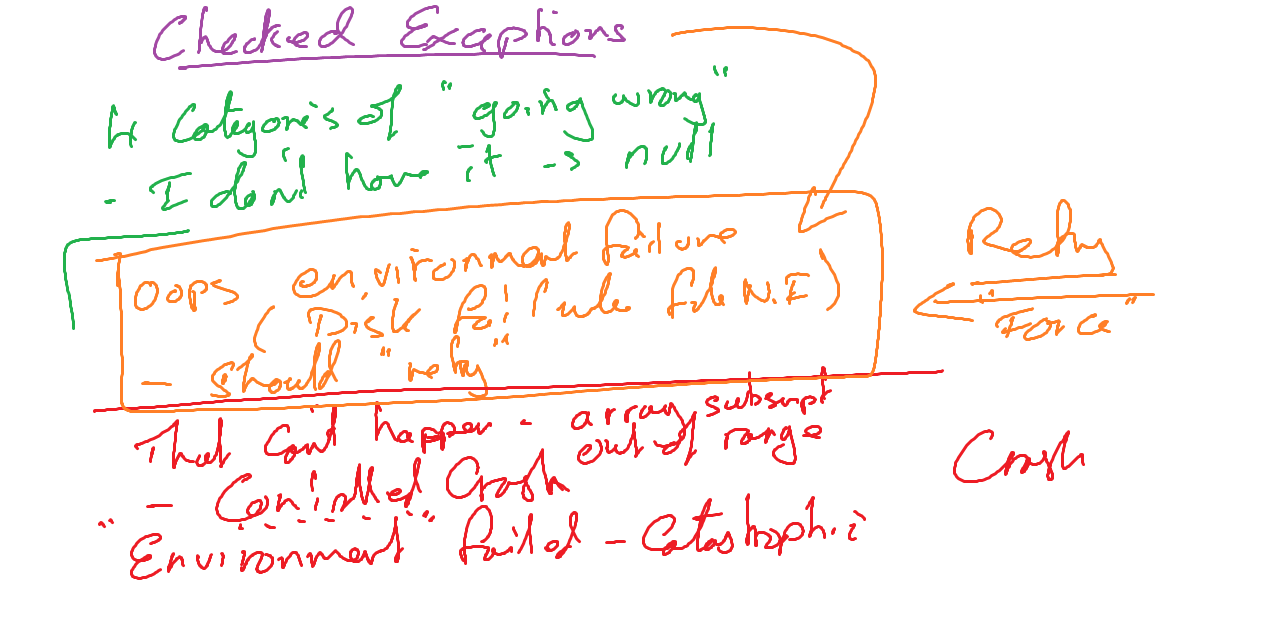 Checked Exaptions
4 Categories of "going wrong"
- I don't have it -> null
Oops environment failure
(Disk failure file N.E)
- Should "retry"
Retry
"Force"
That can't happen - array subscript
out of range
- Controlled Crash
Crash
"Environment" failed - Catastrophic